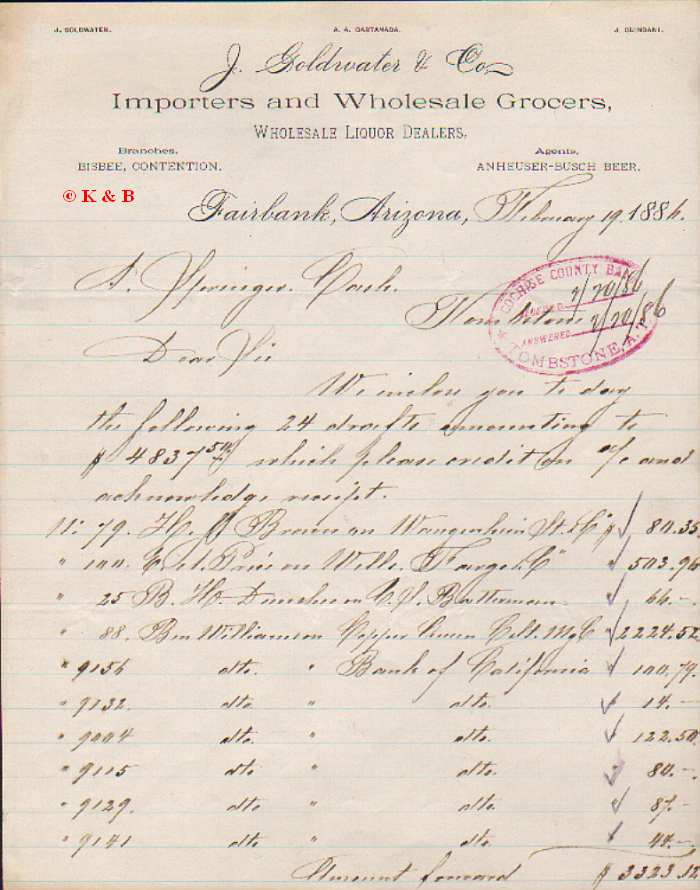 J. GOLDWATER. A. A. CASTANADA. J. GUINDANI.
J. Goldwater & Co
IMPORTERS AND WHOLESALE GROCERS,
WHOLESALE LIQUOR DEALERS.
Branches. Agents.
BISBEE, CONTENTION. ANHEUSER-BUSCH BEER.
© K & B
Fairbank, Arizona, February 19, 1886.
COCHISE COUNTY BANK
2/20/86
ANSWERED 2/20/86
TOMBSTONE, A.T.
A. Springer Cash.
Tombstone
Dear Sir
We inclose you to day
the following 24 drafts amounting to
$ 4837 50 which please credit on a/c and
acknowledge receipt.
No 79. H. J Brown on Wangenheim St. & Co $ 80.35
" 100. on Wells. Fargo & Co 503.96
" 25 B. H. on C. S. Batterman 66.-
" 88. Ben Williamson Copper Queen Clt. M. Co 2224.52
" 9156 dto. " Bank of California 100.79
" 9132 dto. " dto. 14.-
" 9004 dto. " dto. 122.50
" 9115 dto " dto. 80.-
" 9129. dto " dto. 87.-
" 9141 dto " dto. 44.-
Amount forward $ 3323.12